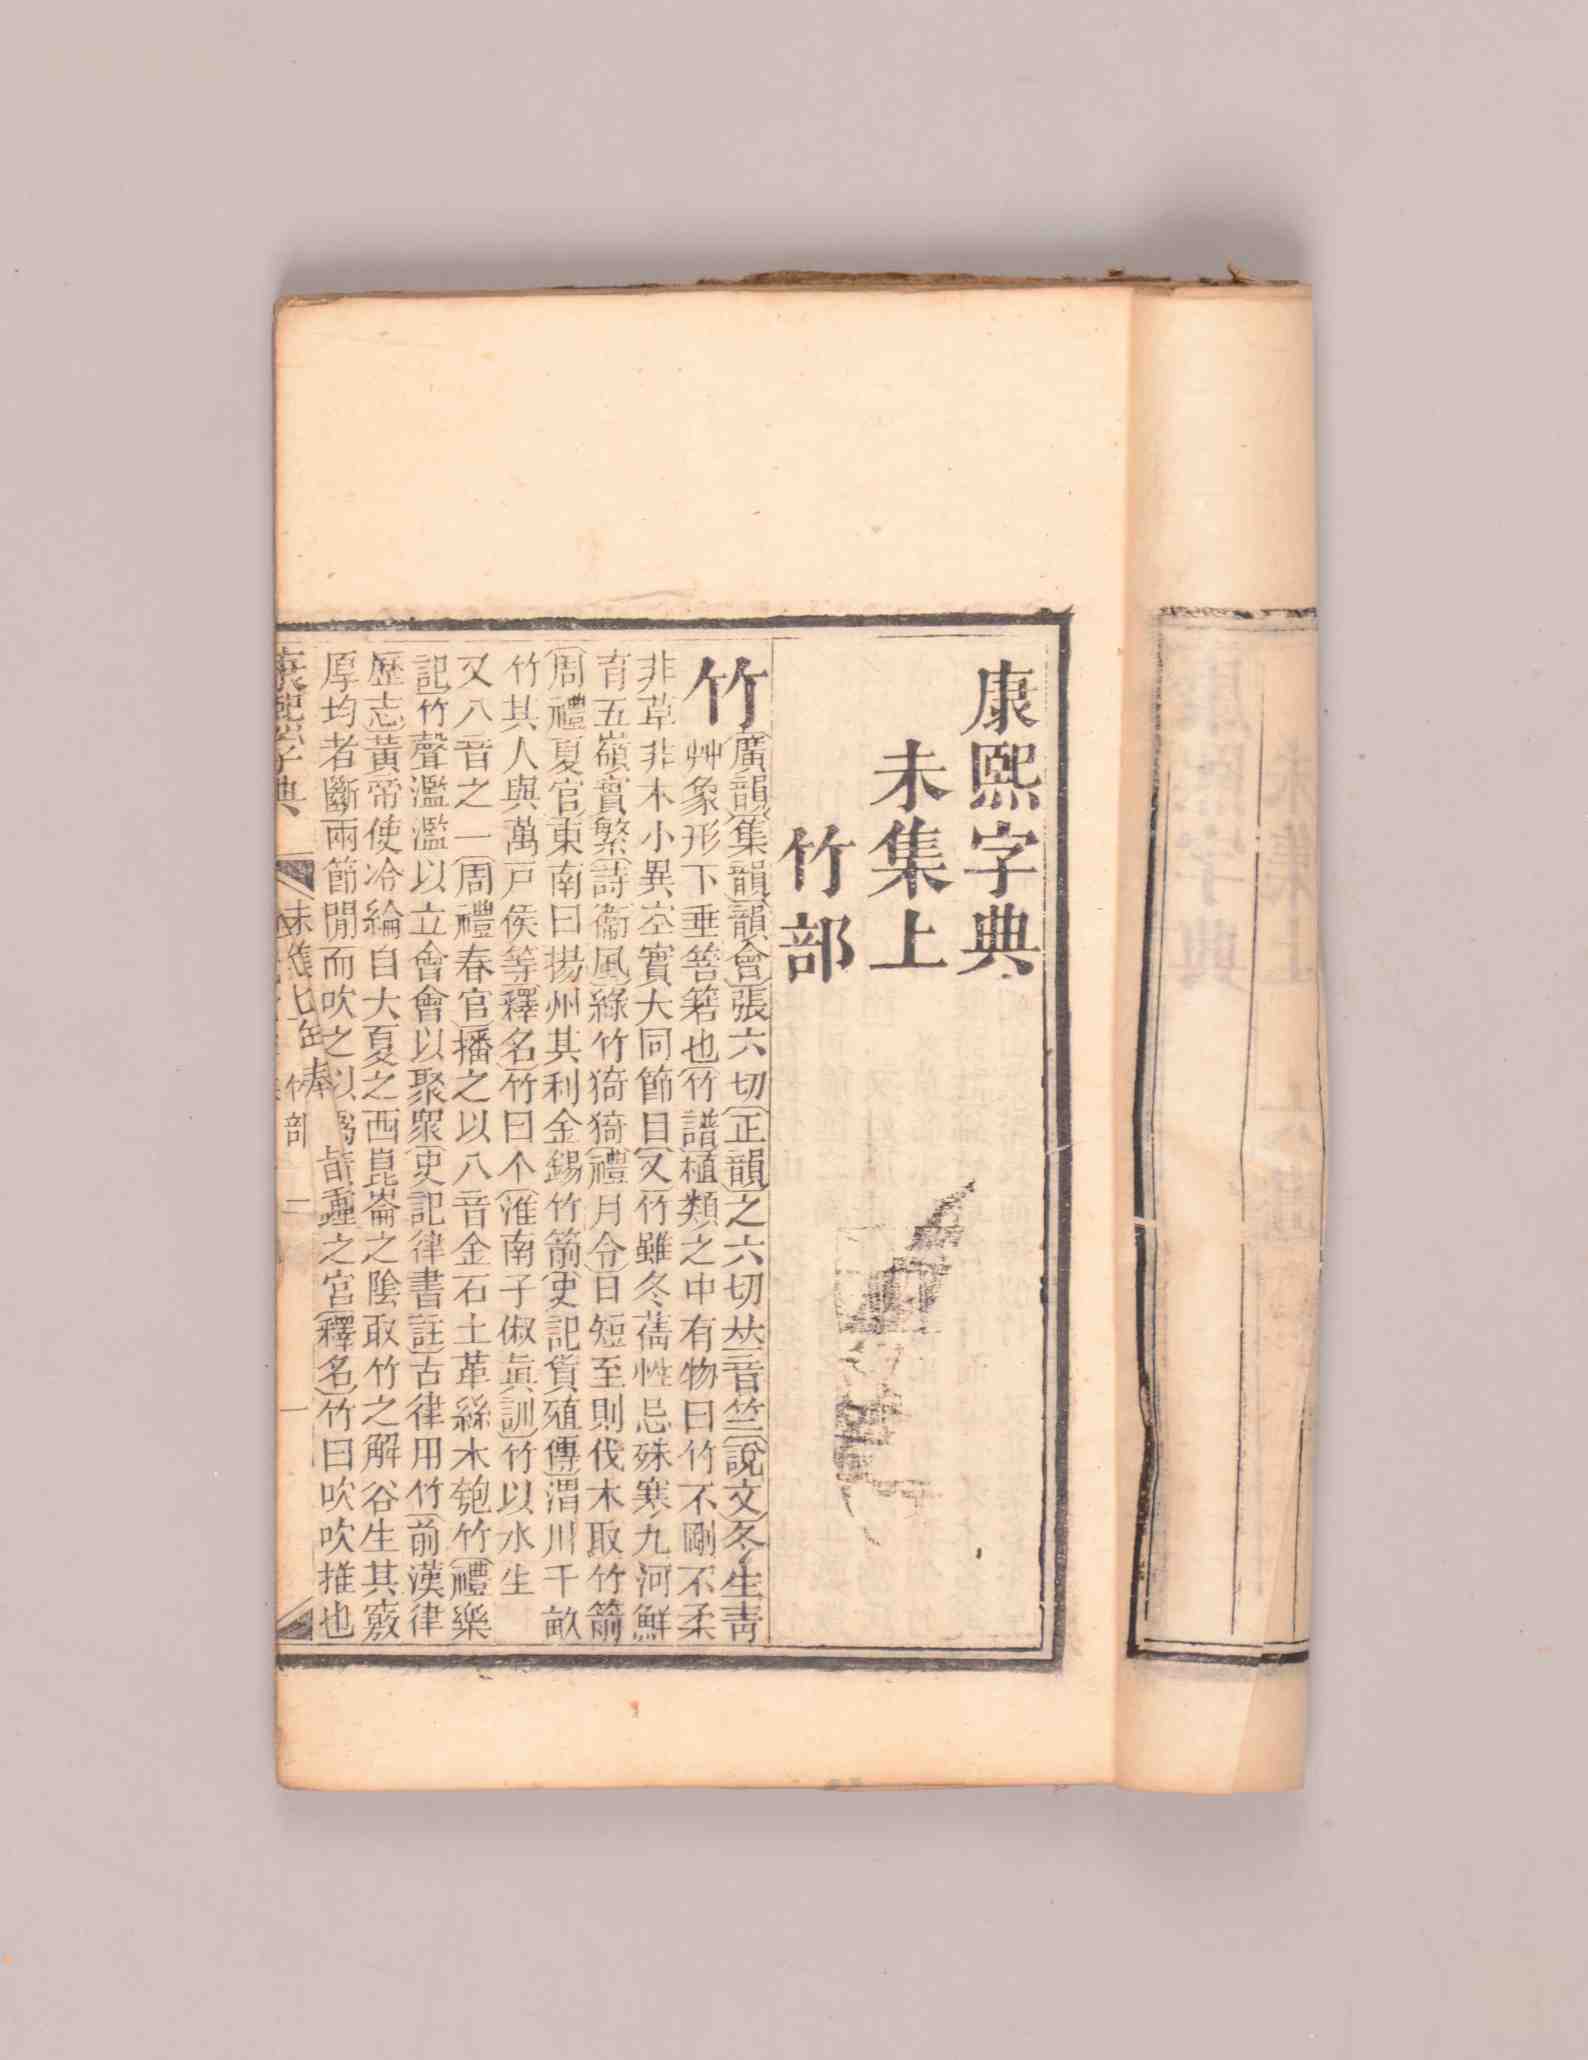 康熙字典
未集上
竹部
竹廣韻集韻韻會張六切正韻之六切𠀤音竺說文冬生靑
艸象形下垂箁箬也竹譜植類之中有物曰竹不剛不柔
非草非木小異空實大同節目又竹雖冬蒨性忌殊寒九河鮮
育五嶺實繁詩衞風綠竹猗猗禮月令日短至則伐木取竹箭
周禮夏官東南曰揚州其利金錫竹箭史記貨殖傳渭川千畝
竹其人與萬戸侯等釋名竹曰个淮南子俶眞訓竹以水生
又八音之一周禮春官播之以八音金石土革絲木匏竹禮樂
記竹聲濫濫以立會會以聚衆史記律書註古律用竹前漢律
歷志黃帝使泠綸自大夏之西崑崙之隂取竹之解谷生其竅
厚均者斷兩節閒而吹之以爲黃鍾之宮釋名竹曰吹吹推也
康熙字典
未集上
竹部
一
康熙字典
未集上